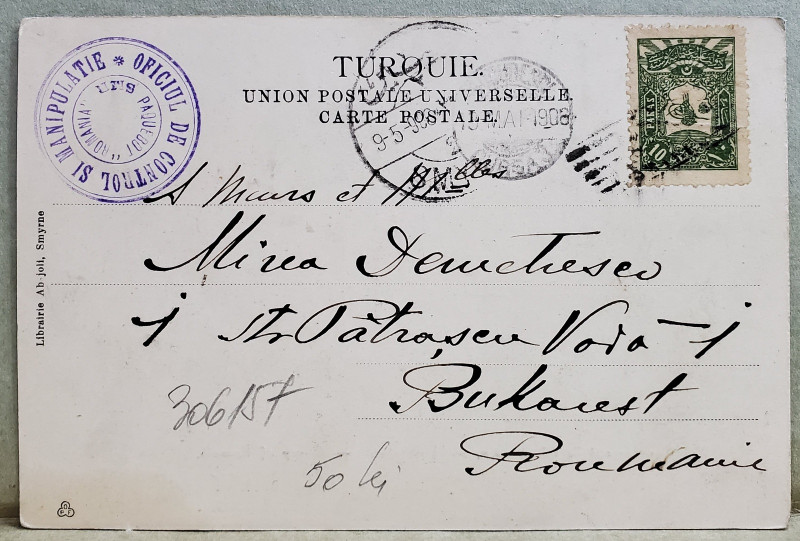 OFICIUL DE CONTROL SI MANIPULATIE *
PAQUEBOT „ROMANIA”
TURQUIE.
UNION POSTALE UNIVERSELLE.
CARTE POSTALE.
9-5-
MAI 1908
10 PARAS
10
et Mlles
Mirea Demetrescu
1 str Pătrașcu Vodă - 1
Bukarest
Roumanie
306157
50 lei
Librairie Ab-joli, Smyrne